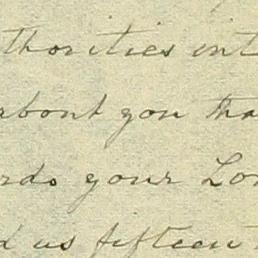 thorities int
about you tha
rds your Lor
d us fifteen